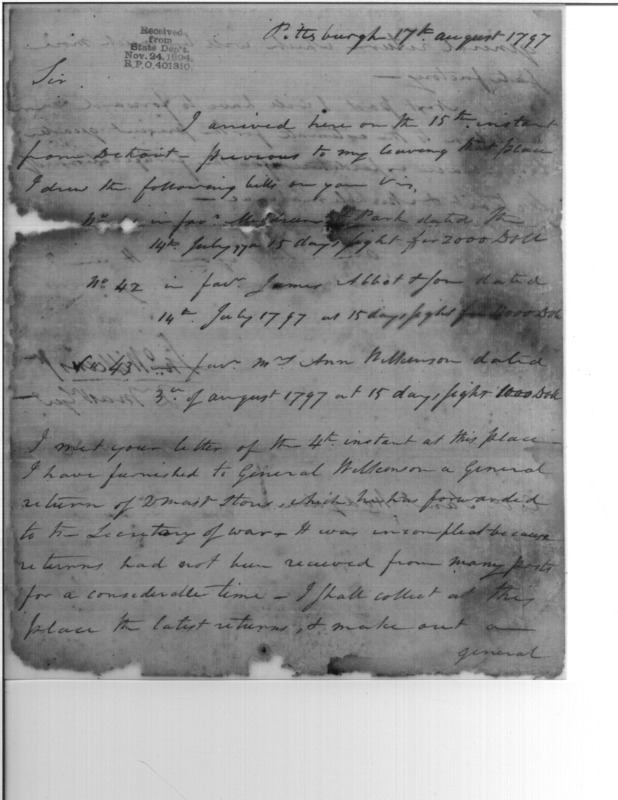 Pittsburgh 17th august 1797
Received
from
State Dep't.
Nov. 24, 1894,
R.P.O. 401310.
Sir
I arrived here on the 15th instant
from Detroit – previous to my leaving that place
I drew the following bills on you Viz,
No in favr Park dated the
14th July 15 days sight for 2000 Doll
No 42 in favr James Abbot & Son dated
14th July 1797 at 15 days sight for Doll
43 favr Mrs Ann Wilkenson dated
3rd of august 1797 at 15 days sight 1000 Doll
I met your letter of the 4th instant at this place
I have furnished to General Wilkenson a General
return of Qmast Stores, which he has forwarded
to the Secretary of war – It was incompleat because
returns had not been received from many posts
for a considerable time – I shall collect at this
place the latest returns, & make out a
general